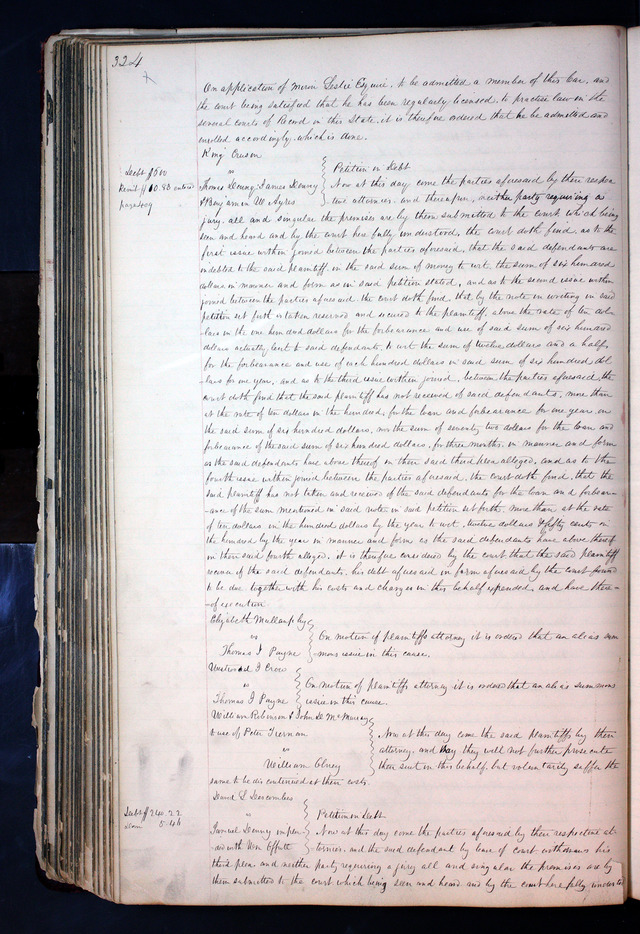 324
On application of Miron Leslie Esquire, to be admitted a member of this Bar, and
the court being satisfied that he has been regularly licensed, to practise law in the
several courts of Record in this State, it is therefore ordered that he be admitted and
enrolled accordingly, which is done.
King Cruson
vs
Petition in Debt
Debt $600
Remit $10.80 entered
Thomas Denny James Denny
& Benjamin W Ayres
Now at this day come the parties aforesaid by their respec
tive attornies, and thereupon, neither party requiring a
jury, all and singular the premises are by them submitted to the court, which being
seen and heard and by the court here fully understood, the court doth find, as to the
first issue within joined between the parties aforesaid, that the said defendants are
indebted to the said plaintiff in the said sum of money to wit, the sum of six hundred
dollars in manner and form as in said petition stated, and as to the second issue within
joined between the parties aforesaid, the court doth find, that by the note in writing in said
petition set forth is taken reserved and secured to the plaintiff, above the rate of ten dol-
lars in the one hundred dollars for the forbearance and use of said sum of six hundred
dollars actually lent to said defendants, to wit the sum of twelve dollars and a half,
for the forbearance and use of each hundred dollars in said sum of six hundred dol
-lars for one year, and as to the third issue within joined, between the parties aforesaid the
court doth find that the said plaintiff has not received of said defendants, more than
at the rate of ten dollars in the hundred, for the loan and forbearance for one year, on
the said sum of six hundred dollars, nor the sum of seventy two dollars for the loan and
forbearance of the said sum of six hundred dollars, for three months, in manner and form
as the said defendants have above thereof in their said third plea alleged, and as to the
fourth issue within joined between the parties aforesaid, the court doth find, that the
said plaintiff has not taken and received of the said defendants for the loan and forbear-
-ance of the sum mentioned in said note in said petition set forth, more than at the rate
of ten dollars in the hundred dollars by the year to wit, twelve dollars & fifty cents in
the hundred by the year in manner and form as the said defendants have above thereof
in their said fourth alleged, it is therefore considered by the court that the said plaintiff
recover of the said defendants, his debt aforesaid in form aforesaid by the court found
to be due, together with his costs and charges in this behalf expended, and have there-
-of execution
Elizabeth Mullanphy
vs
Thomas J Payne
On motion of plaintiffs attorney it is ordered that an alias sum
mons issue in this cause.
J Crow
vs
Thomas J Payne
On motion of plaintiffs attorney it is ordered that an alias summons
issue in this cause.
William Robinson & John D
to use of Peter
vs
William Olney
Now at this day come the said plaintiffs by their
attorney, and they will not further prosecute
their suit in this behalf, but voluntarily suffer the
same to be discontinued at their costs.
David L Descombes
vs
Petition in Debt
Debt $240.22
dam 5.46
Denny
Now at this day come the parties aforesaid by their respective at-
-tornies, and the said defendant by leave of court withdraws his
third plea and neither party requiring a jury all and singular the premises are by
them submitted to the court which being seen and heard and by the court here fully